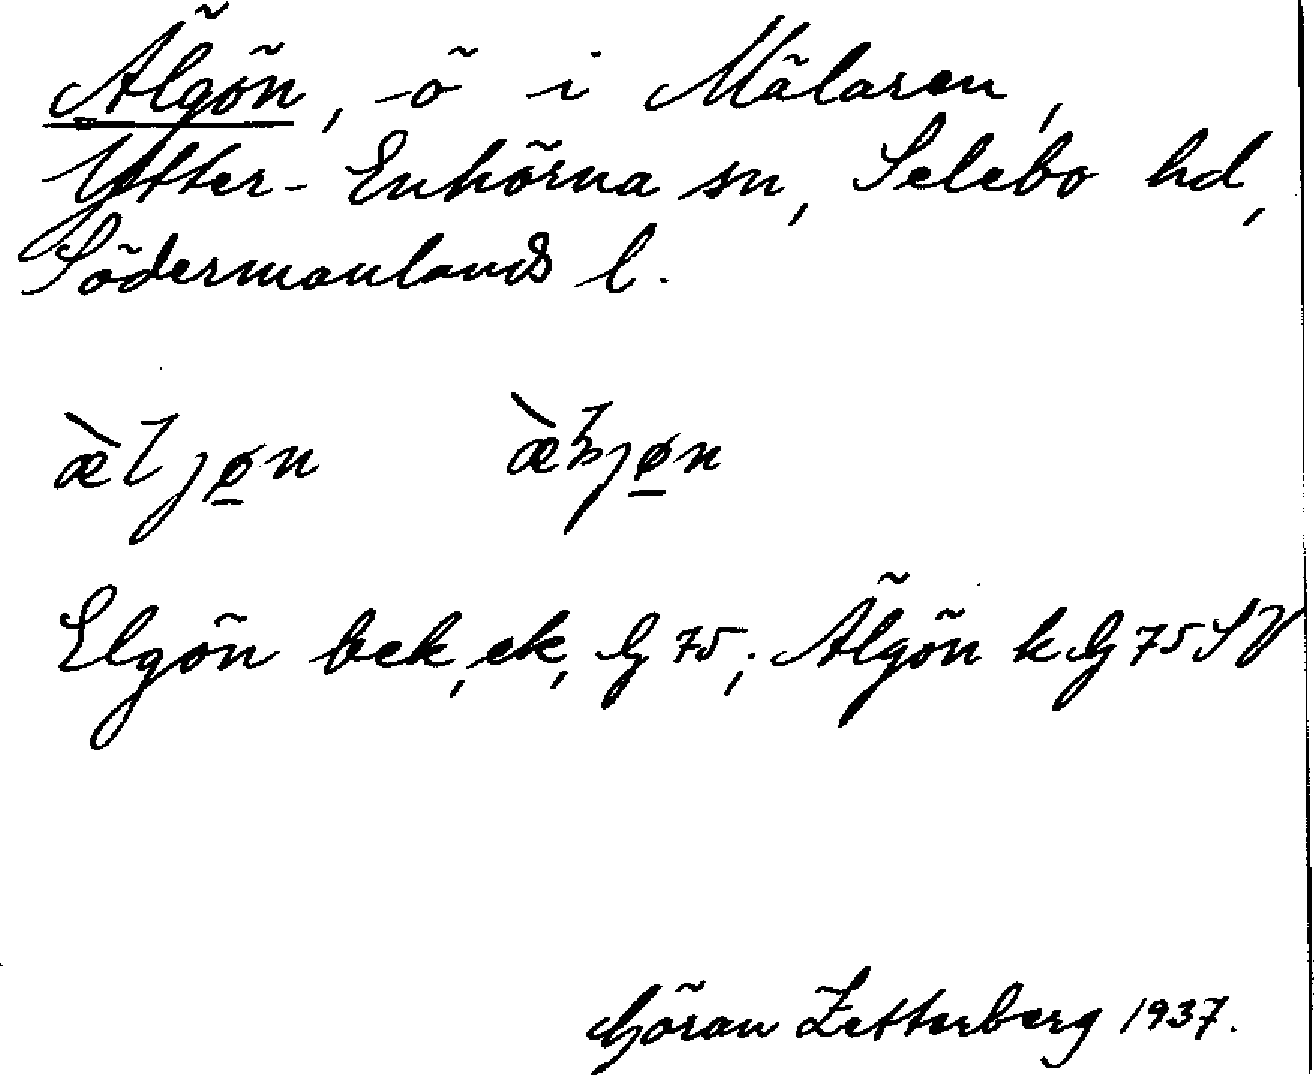 Älgön, ö i Mälaren,
Ytter-Enhörna sn, Selebo hd,
Södermanlands l.
æ̀ljø̱n æ̀ƚjø̱n
Elgön bek, ek, G 75; Älgön k G 75 SV
Göran Zetterberg 1937.